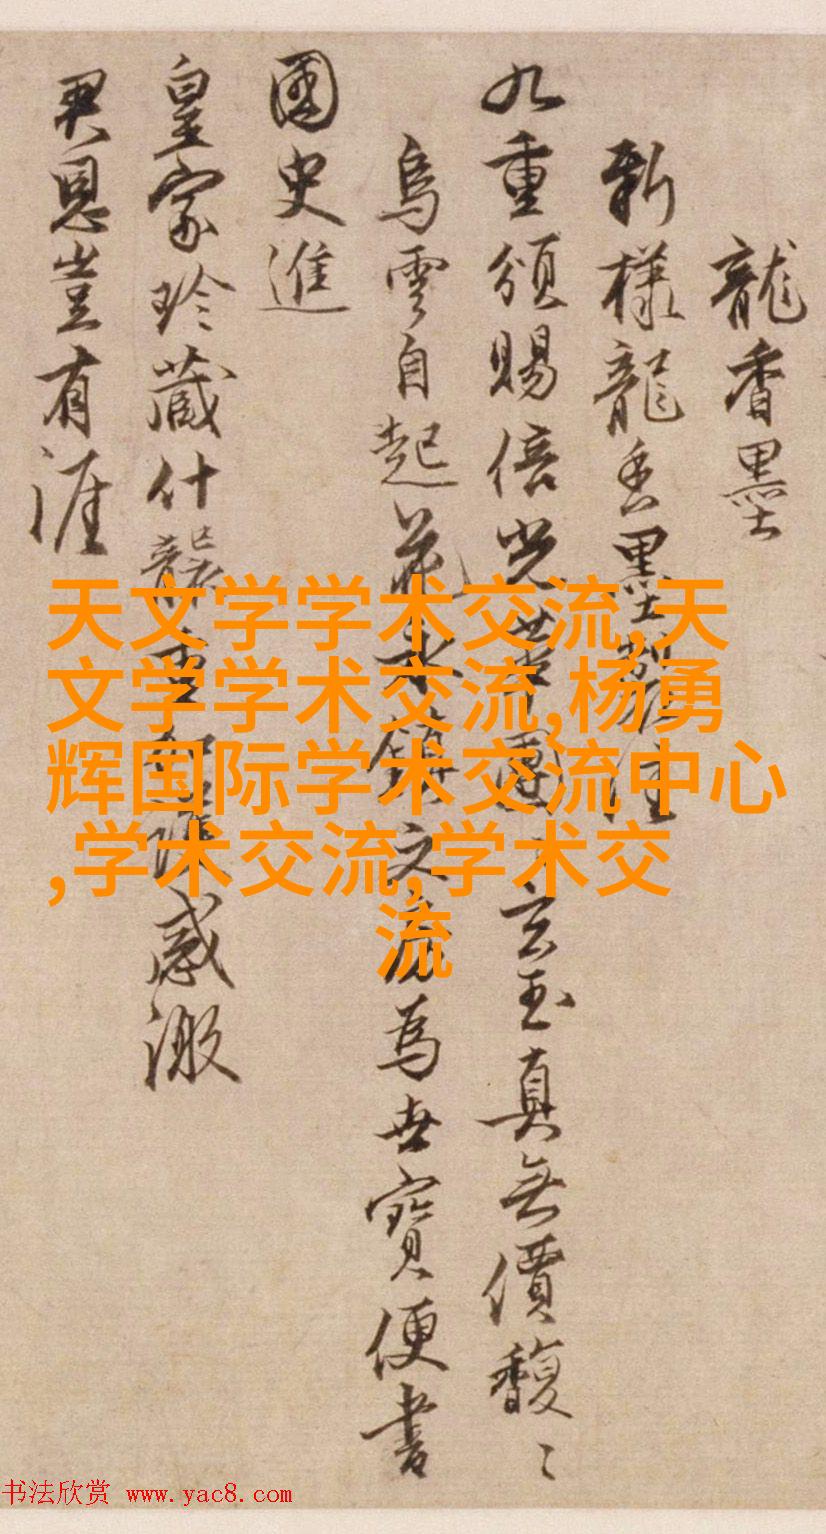 龍香墨
新樣龍香墨製佳
九重頒賜倍光團〻玄玉真無價馥〻
烏雲自起花鎮文房為世寶便書
國史進
皇家珍藏什襲感激
君恩豈有涯
天文学学术交流,天
文学学术交流,杨勇
辉国际学术交流中心
,学术交流,学术交
流
书法欣赏 www.yac8.com